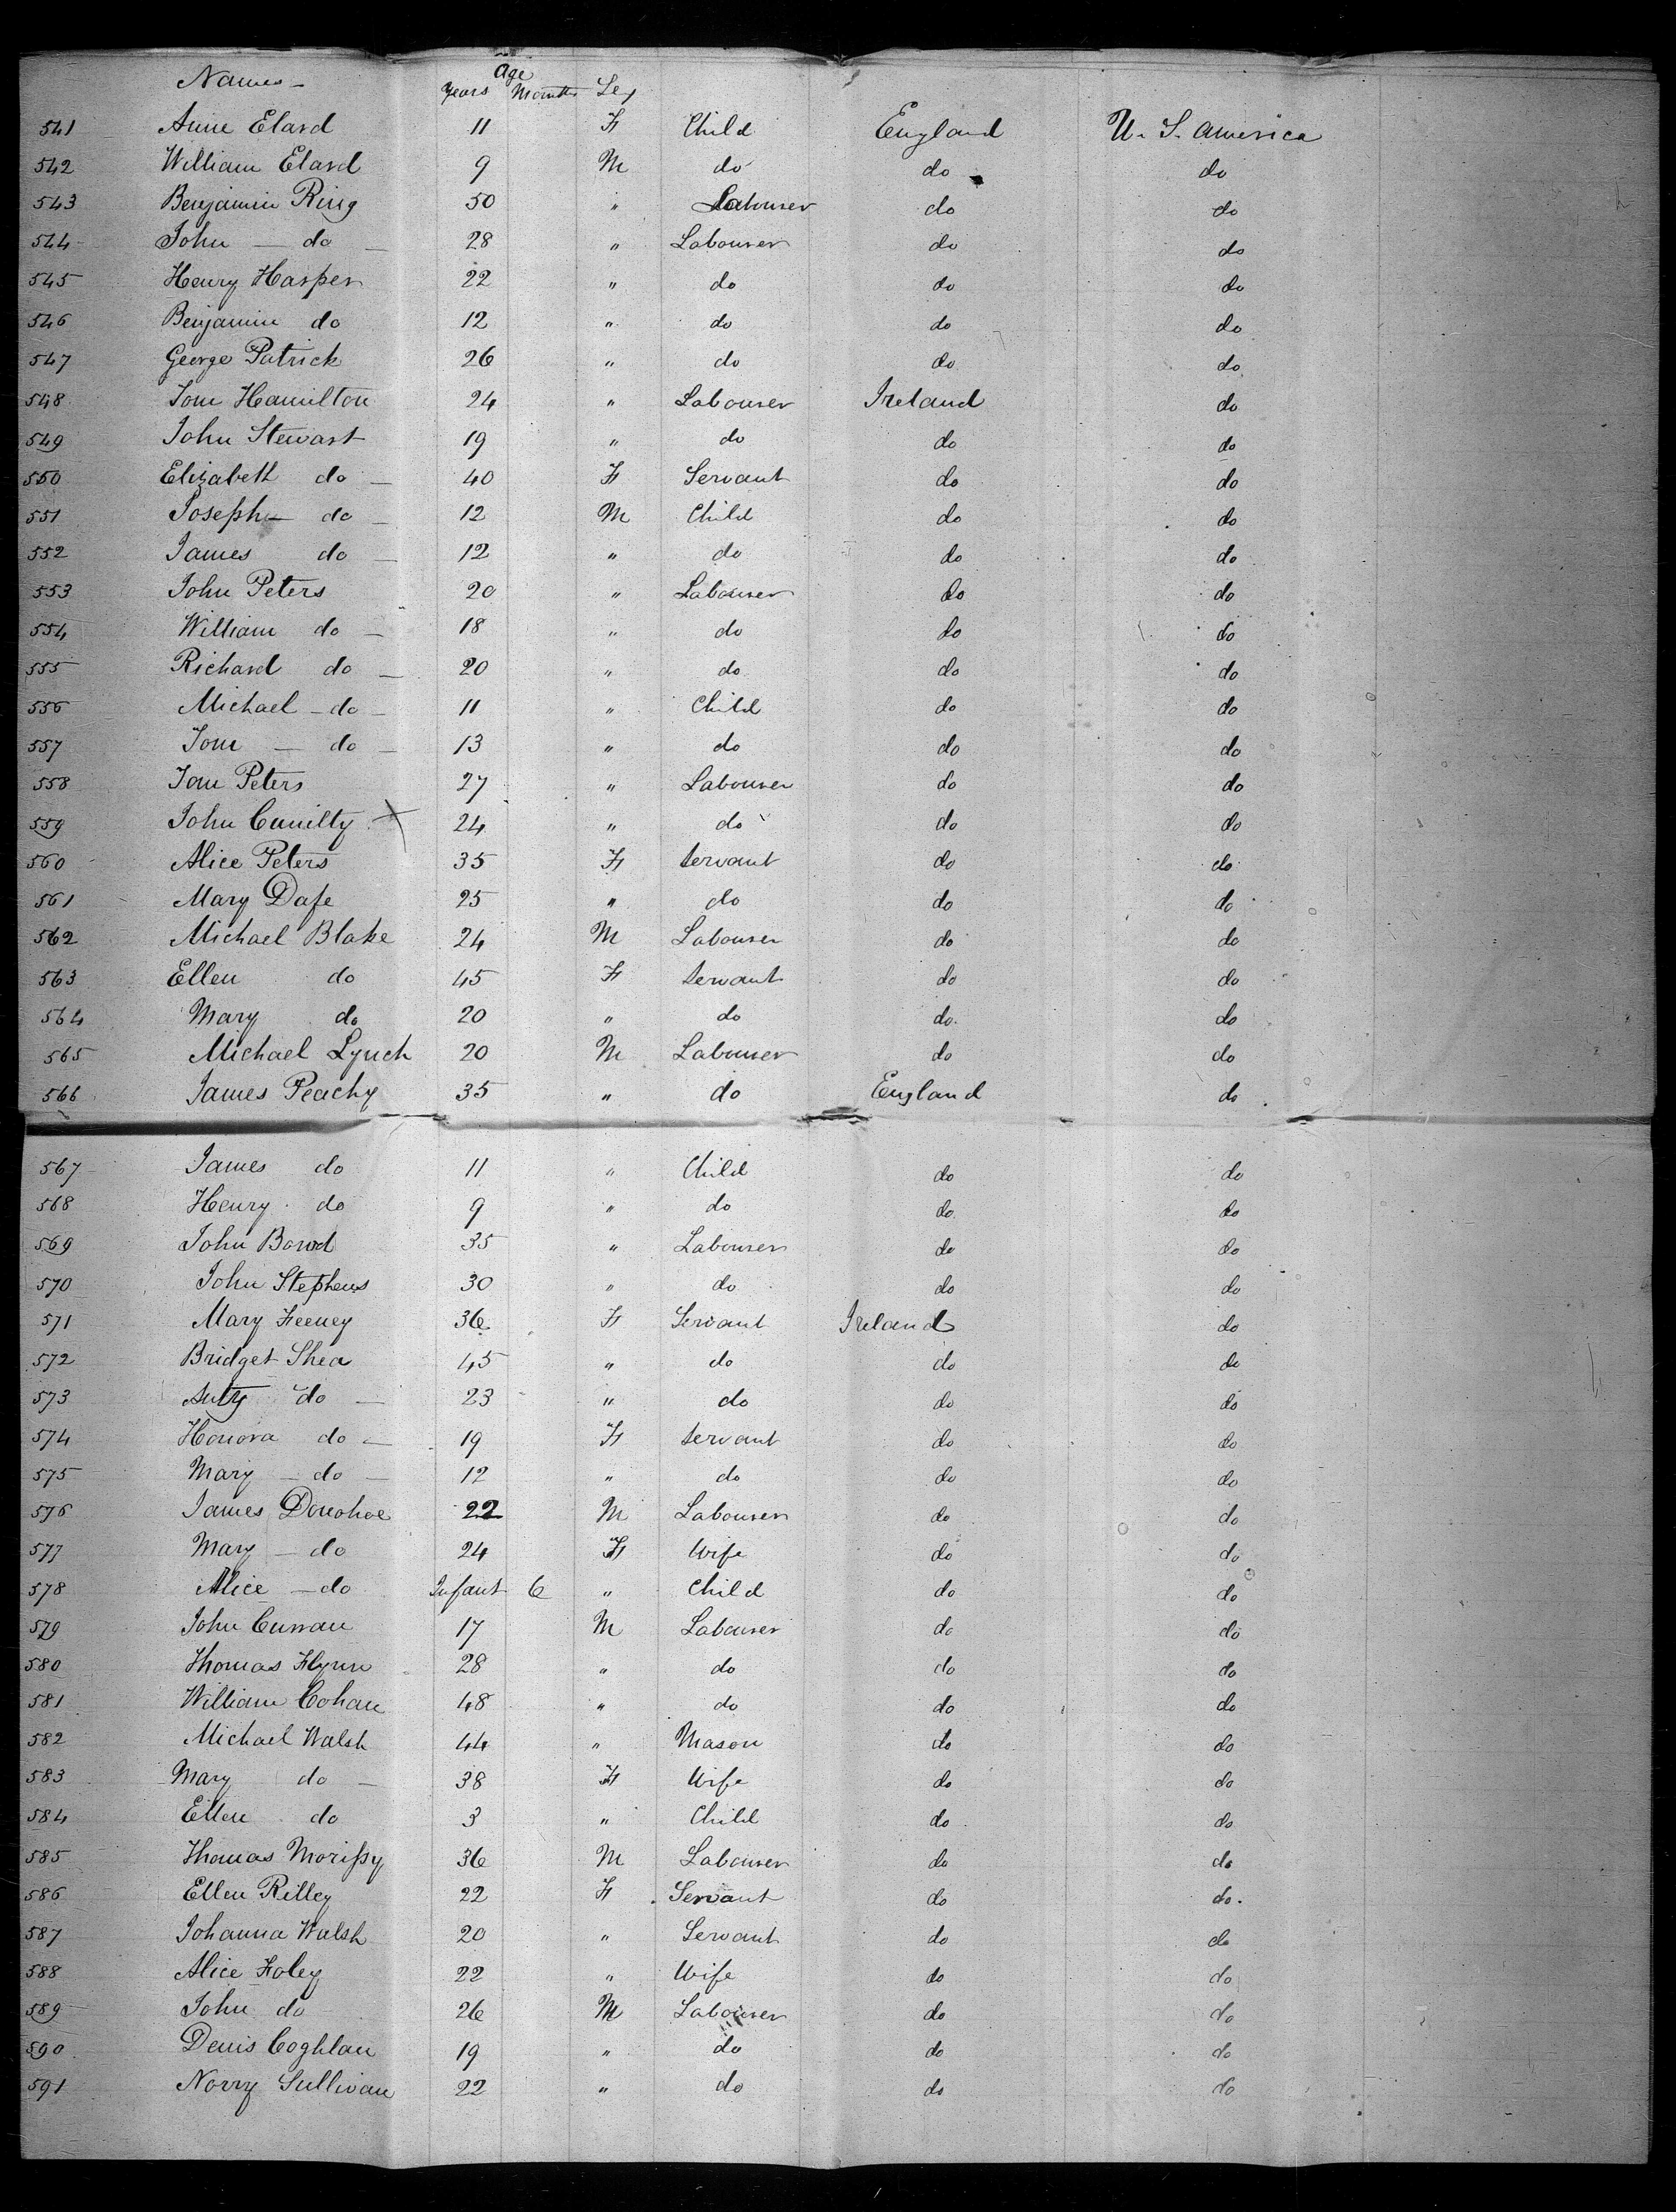 Names - Age Years Months Sex
541 Anne Elard 11 F Child England U. S. America
542 William Elard 9 M do do do
543 Benjamin Ring 50 " Labourer do do
544 John - do - 28 " Labourer do do
545 Henry Harper 22 " do do do
546 Benjamin do 12 " do do do
547 George Patrick 26 " do do do
548 Tom Hamilton 24 " Labourer Ireland do
549 John Stewart 19 " do do do
550 Elizabeth do - 40 F Servant do do
551 Joseph - do - 12 M Child do do
552 James do - 12 " do do do
553 John Peters 20 " Labourer do do
554 William do - 18 " do do do
555 Richard do - 20 " do do do
556 Michael - do - 11 " Child do do
557 Tom - do - 13 " do do do
558 Tom Peters 27 " Labourer do do
559 John X 24 " do do do
560 Alice Peters 35 F Servant do do
561 Mary 25 " do do do
562 Michael Blake 24 M Labourer do do
563 Ellen do 45 F Servant do do
564 Mary do 20 " do do. do
565 Michael Lynch 20 M Labourer do do
566 James Peachy 35 " do England do
567 James do 11 " Child do do
568 Henry do 9 " do do do
569 John 35 " Labourer do do
570 John Stephens 30 " do do do
571 Mary Feeney 36 F Servant Ireland do
572 Bridget Shea 45 " do do do
573 do - 23 " do do do
574 Honora do - 19 F Servant do do
575 Mary - do - 12 " do do do
576 James Donohoe 22 M Labourer do do
577 Mary - do 24 F Wife do do
578 Alice - do Infant 6 " Child do do
579 John Curran 17 M Labourer do do
580 Thomas Flynn 28 " do do do
581 William Cohan 48 " do do do
582 Michael Walsh 44 " Mason do do
583 Mary do - 38 F Wife do do
584 Ellen do 3 " Child do do
585 Thomas Morissy 36 M Labourer do do
586 Ellen Rilley 22 F Servant do do.
587 Johanna Walsh 20 " Servant do do
588 Alice Foley 22 " Wife do do
589 John do 26 M Labourer do do
590 Denis Coghlan 19 " do do do
591 Norry Sullivan 22 " do do do